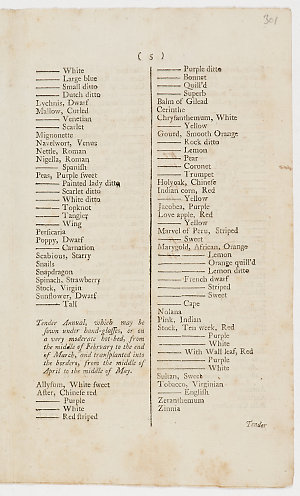 301
( 5 )
——— White
——— Large blue
——— Small ditto
——— Dutch ditto
Lychnis, Dwarf
Mallow, Curled
——— Venetian
——— Scarlet
Mignonette
Navelwort, Venus
Nettle, Roman
Nigella, Roman
——— Spanish
Peas, Purple sweet
——— Painted lady ditto
——— Scarlet ditto
——— White ditto
——— Topknot
——— Tangier
——— Wing
Persicaria
Poppy, Dwarf
——— Carnation
Scabious, Starry
Snails
Snapdragon
Spinach, Strawberry
Stock, Virgin
Sunflower, Dwarf
——— Tall
Tender Annual, which may be
sown under hand-glasses, or on
a very moderate hot-bed, from
the middle of February to the end
of March, and transplanted into
the borders, from the middle of
April to the middle of May.
Allysum, White sweet
After, Chinese red
——— Purple
——— White
——— Red striped
——— Purple ditto
——— Bonnet
——— Quill'd
——— Superb
Balm of Gilead
Cerinthe
Chrysanthemum, White
——— Yellow
Gourd, Smooth Orange
——— Rock ditto
——— Lemon
——— Pear
——— Coronet
——— Trumpet
Holyoak, Chinese
Indian corn, Red
——— Yellow
Jacobea, Purple
Love apple, Red
——— Yellow
Marvel of Peru, Striped
——— Sweet
Marygold, African, Orange
——— Lemon
——— Orange quill'd
——— Lemon ditto
——— French dwarf
——— Striped
——— Sweet
——— Cape
Nolana
Pink, Indian
Stock, Ten week, Red
——— Purple
——— White
——— With Wall leaf, Red
——— Purple
——— White
Sultan, Sweet
Tobacco, Virginian
——— English
Zeranthemum
Zinnia
Tender